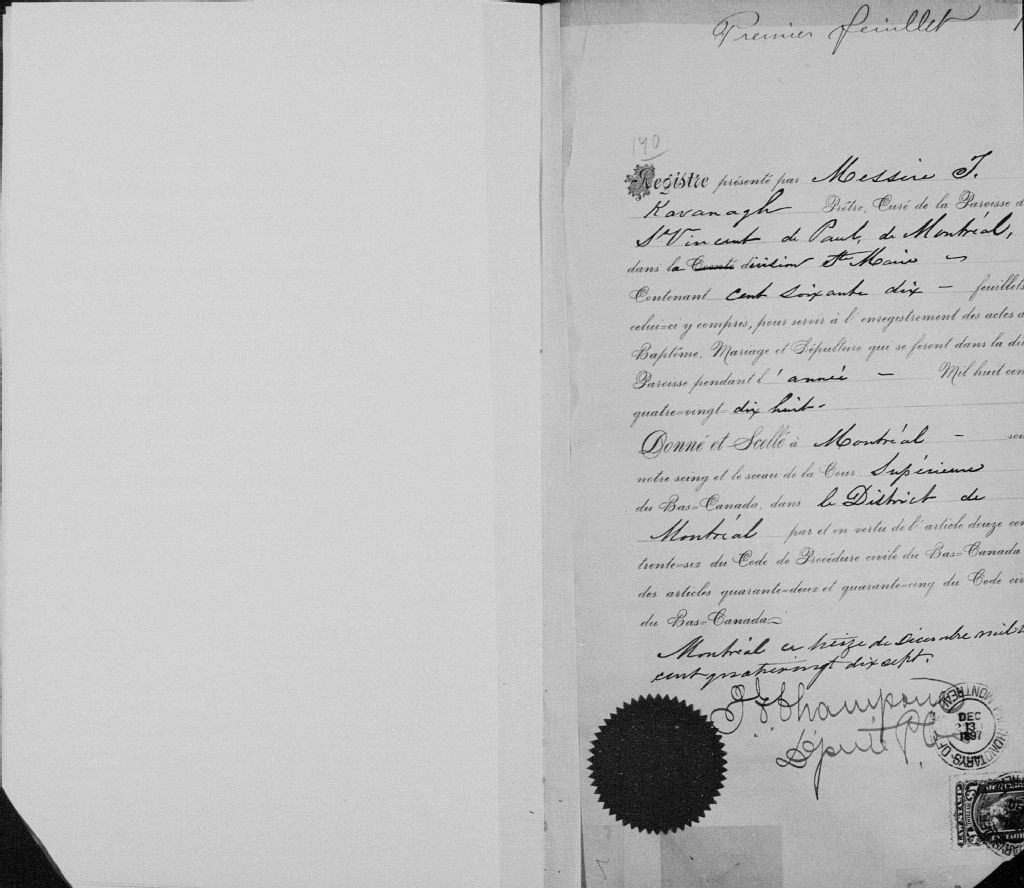 Premier feuillet
170
Registre présenté par Messire J.
Kavanagh Prêtre, Curé de la Paroisse d
St Vincent de Paul, de Montréal,
dans la Comté division Ste Marie
Contenant cent soixante dix — feuillets
celui=ci y compris, pour servir à l'enregistrement des actes d
Baptême, Mariage et Sépulture qui se feront dans la di
Paroisse pendant l'année — Mil huit cen
quatre=vingt dix huit.
Donné et Scellé à Montréal — sou
notre seing et le sceau de la Cour Supérieure
du Bas=Canada, dans le District de
Montréal par et en vertu de l'article douze cen
trente=six du Code de Procédure civile du Bas=Canada
des articles quarante=deux et quarante=cinq du Code civ
du Bas=Canada
Montréal ce treize de Décembre mil h
cent quatrevingt dix sept.
Champou
Député P.
MONTREAL
DEC
13
1897
HONOTARYS-OF